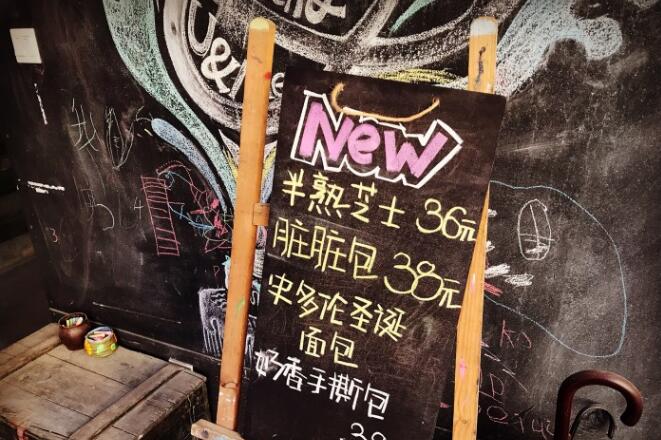 U&Me
New
半熟芝士 36元
脏脏包 38元
史多伦圣诞
面包
奶香手撕包
38